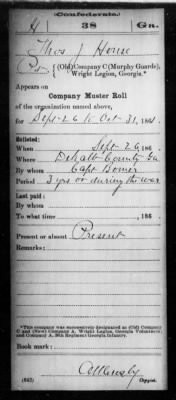 (Confederate.)
H 38 Ga.
Thos J House
Pvt (Old) Company C (Murphy Guards),
Wright Legion, Georgia.*
Appears on
Company Muster Roll
of the organization named above,
for Sept 26 to Oct 31, 1861.
Enlisted:
When Sept 26, 186 .
Where DeKalb County Ga
By whom Capt
Period 3 yrs or during the war
Last paid:
By whom
To what time , 186 .
Present or absent Present
Remarks:
*This company was successively designated as (Old) Company
C and (New) Company A, Wright Legion, Georgia Volunteers,
and Company A, 38th Regiment Georgia Infantry.
Book mark:
(642) Copyist.